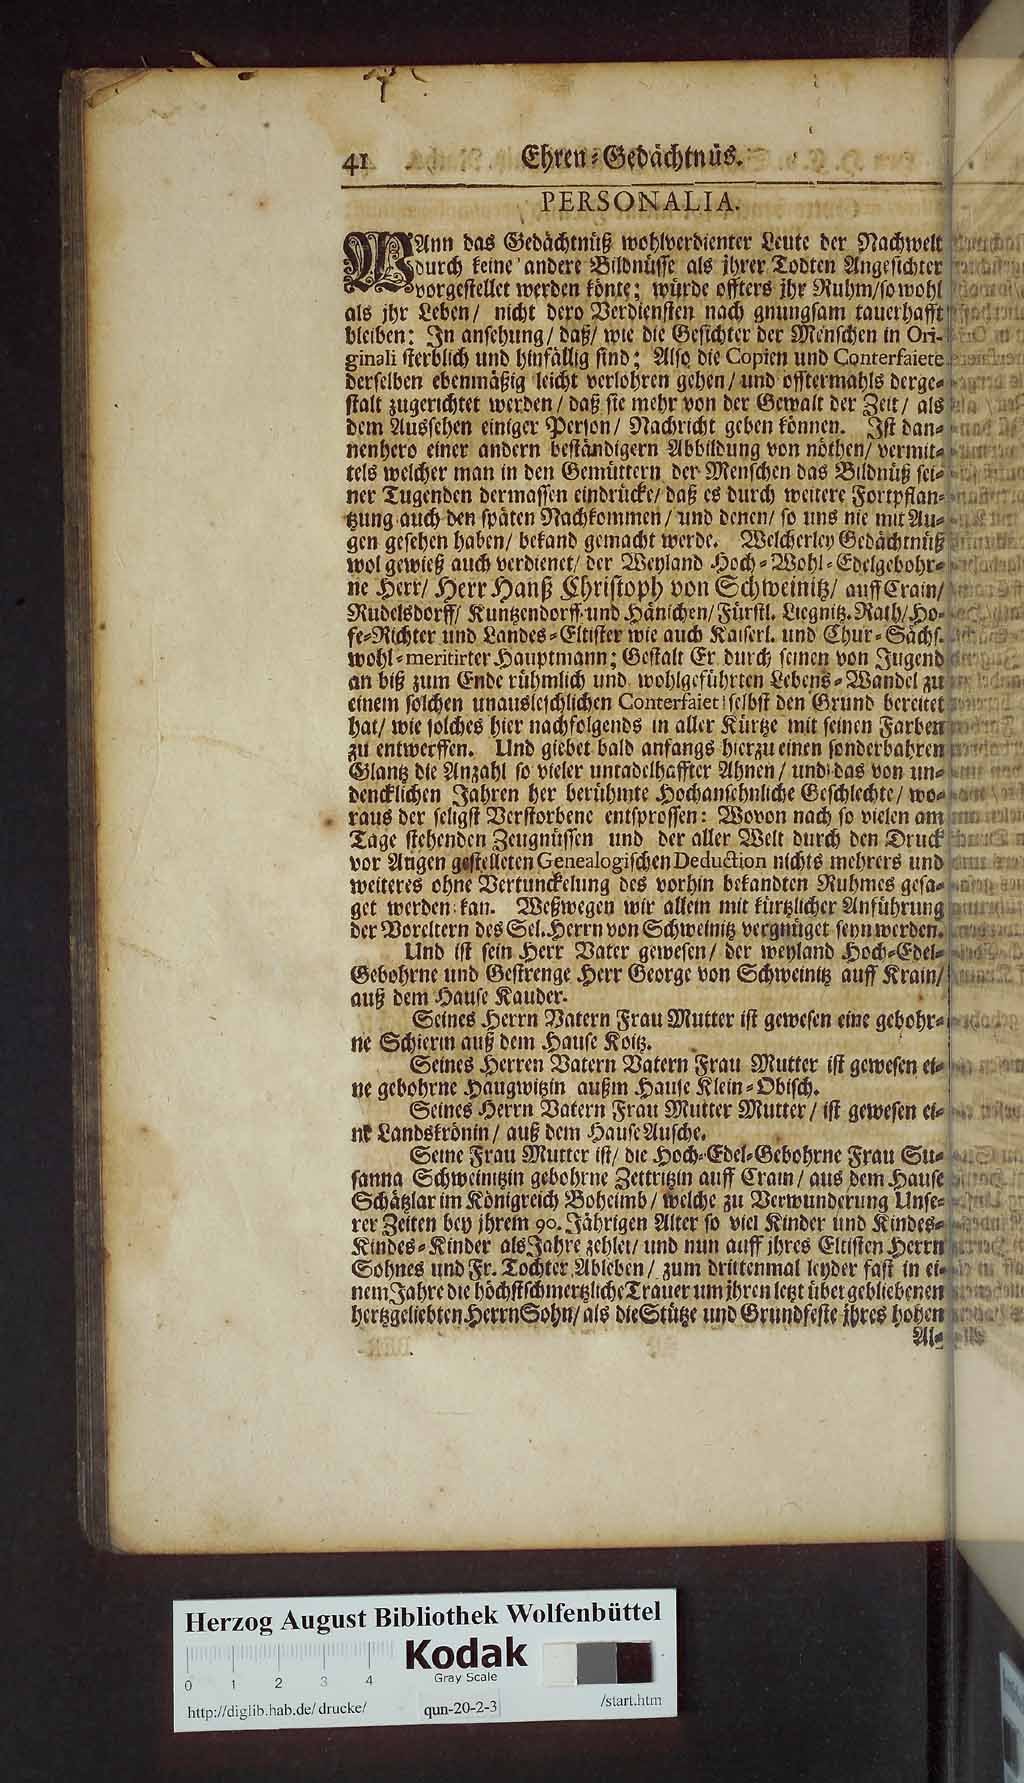 41 Ehren-Gedächtnüs.
PERSONALIA.
WAnn das Gedächtnüß wohlverdienter Leute der Nachwelt
durch keine andere Bildnüsse als jhrer Todten Angesichter
vorgestellet werden könte; würde offters jhr Ruhm/ so wohl
als jhr Leben/ nicht dero Verdiensten nach gnungsam tauerhafft
bleiben: In ansehung/ daß/ wie die Gesichter der Menschen in Ori-
ginali sterblich und hinfällig sind; Also die Copien und Conterfaiete
derselben ebenmäßig leicht verlohren gehen/ und offtermahls derge-
stalt zugerichtet werden/ daß sie mehr von der Gewalt der Zeit/ als
dem Aussehen einiger Person/ Nachricht geben können. Ist dan-
nenhero einer andern beständigern Abbildung von nöthen/ vermit-
tels welcher man in den Gemüttern der Menschen das Bildnüß sei-
ner Tugenden dermassen eindrücke/ daß es durch weitere Fortpflan-
tzung auch den späten Nachkommen/ und denen/ so uns nie mit Au-
gen gesehen haben/ bekand gemacht werde. Welcherley Gedächtnüß
wol gewieß auch verdienet/ der Weyland Hoch-Wohl-Edelgebohr-
ne Herr/ Herr Hanß Christoph von Schweinitz/ auff Crain/
Rudelsdorff/ Kuntzendorff und Hänichen/ Fürstl. Liegnitz. Rath/ Ho-
fe-Richter und Landes-Eltister wie auch Kaiserl. und Chur-Sächs.
wohl-meritirter Hauptmann; Gestalt Er durch seinen von Jugend
an biß zum Ende rühmlich und wohlgeführten Lebens-Wandel zu
einem solchen unausleschlichen Conterfaiet selbst den Grund bereitet
hat/ wie solches hier nachfolgends in aller Kürtze mit seinen Farben
zu entwerffen. Und giebet bald anfangs hierzu einen sonderbahren
Glantz die Anzahl so vieler untadelhaffter Ahnen/ und das von un-
dencklichen Jahren her berühmte Hochansehnliche Geschlechte/ wo-
raus der seligst Verstorbene entsprossen: Wovon nach so vielen am
Tage stehenden Zeugnüssen und der aller Welt durch den Druck
vor Augen gestelleten Genealogischen Deduction nichts mehrers und
weiteres ohne Vertunckelung des vorhin bekandten Ruhmes gesa-
get werden kan. Weßwegen wir allein mit kürtzlicher Anführung
der Voreltern des Sel. Herrn von Schweinitz vergnüget seyn werden.
Und ist sein Herr Vater gewesen/ der weyland Hoch-Edel-
Gebohrne und Gestrenge Herr George von Schweinitz auff Krain/
auß dem Hause Kauder.
Seines Herrn Vatern Frau Mutter ist gewesen eine gebohr-
ne Schierin auß dem Hause Koitz.
Seines Herren Vatern Vatern Frau Mutter ist gewesen ei-
ne gebohrne Haugwitzin außm Hause Klein-Obisch.
Seines Herrn Vatern Frau Mutter Mutter/ ist gewesen ei-
ne Landskrönin/ auß dem Hause Ausche.
Seine Frau Mutter ist/ die Hoch-Edel-Gebohrne Frau Su-
sanna Schweinitzin gebohrne Zettritzin auff Crain/ aus dem Hause
Schätzlar im Königreich Boheimb/ welche zu Verwunderung Unse-
rer Zeiten bey jhrem 90. Jährigen Alter so viel Kinder und Kindes-
Kindes-Kinder als Jahre zehlet/ und nun auff jhres Eltisten Herrn
Sohnes und Fr. Tochter Ableben/ zum drittenmal leyder fast in ei-
nem Jahre die höchstschmertzliche Trauer um jhren letzt übergebliebenen
hertzgeliebten Herrn Sohn/ als die Stütze und Grundfeste jhres hohen
Al-
Herzog August Bibliothek Wolfenbüttel
Kodak
Gray Scale
0 1 2 3 4
http://diglib.hab.de/drucke/ qun-20-2-3 /start.htm